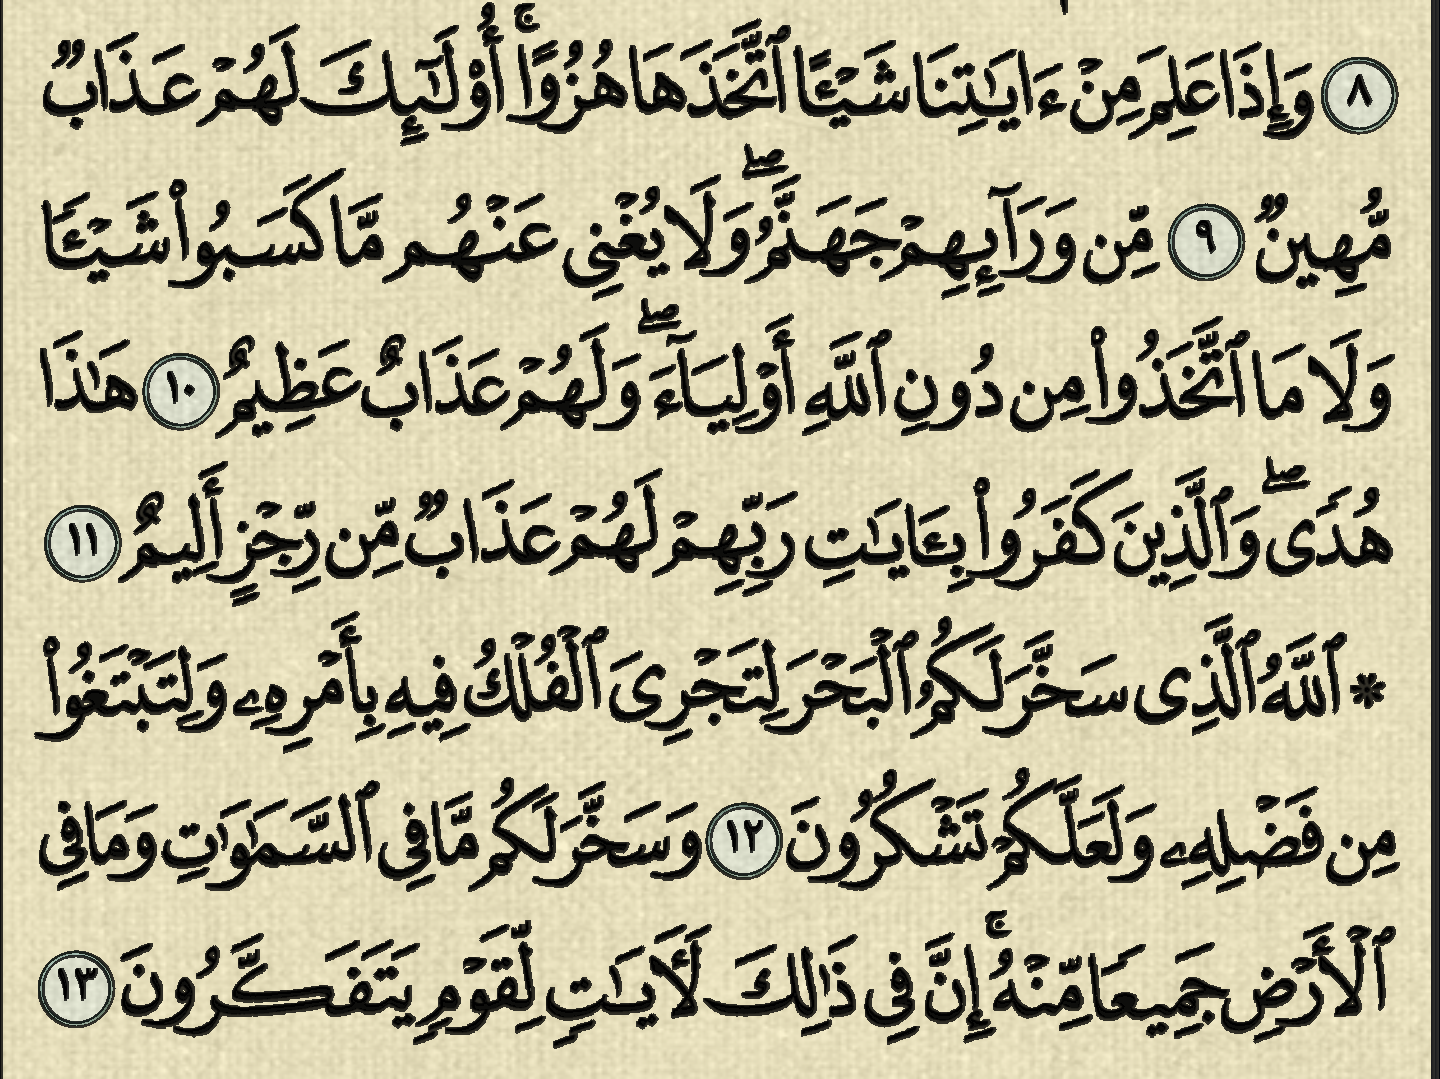 ٨ وَإِذَا عَلِمَ مِنْ ءَايَٰتِنَا شَيْـًٔا ٱتَّخَذَهَا هُزُوًا ۚ أُو۟لَٰٓئِكَ لَهُمْ عَذَابٌ
مُّهِينٌ ٩ مِّن وَرَآئِهِمْ جَهَنَّمُ ۖ وَلَا يُغْنِى عَنْهُم مَّا كَسَبُوا۟ شَيْـًٔا
وَلَا مَا ٱتَّخَذُوا۟ مِن دُونِ ٱللَّهِ أَوْلِيَآءَ ۖ وَلَهُمْ عَذَابٌ عَظِيمٌ ١٠ هَٰذَا
هُدًى ۖ وَٱلَّذِينَ كَفَرُوا۟ بِـَٔايَٰتِ رَبِّهِمْ لَهُمْ عَذَابٌ مِّن رِّجْزٍ أَلِيمٌ ١١
۞ ٱللَّهُ ٱلَّذِى سَخَّرَ لَكُمُ ٱلْبَحْرَ لِتَجْرِىَ ٱلْفُلْكُ فِيهِ بِأَمْرِهِۦ وَلِتَبْتَغُوا۟
مِن فَضْلِهِۦ وَلَعَلَّكُمْ تَشْكُرُونَ ١٢ وَسَخَّرَ لَكُم مَّا فِى ٱلسَّمَٰوَٰتِ وَمَا فِى
ٱلْأَرْضِ جَمِيعًا مِّنْهُ ۚ إِنَّ فِى ذَٰلِكَ لَأيَٰتٍ لِّقَوْمٍ يَتَفَكَّرُونَ ١٣